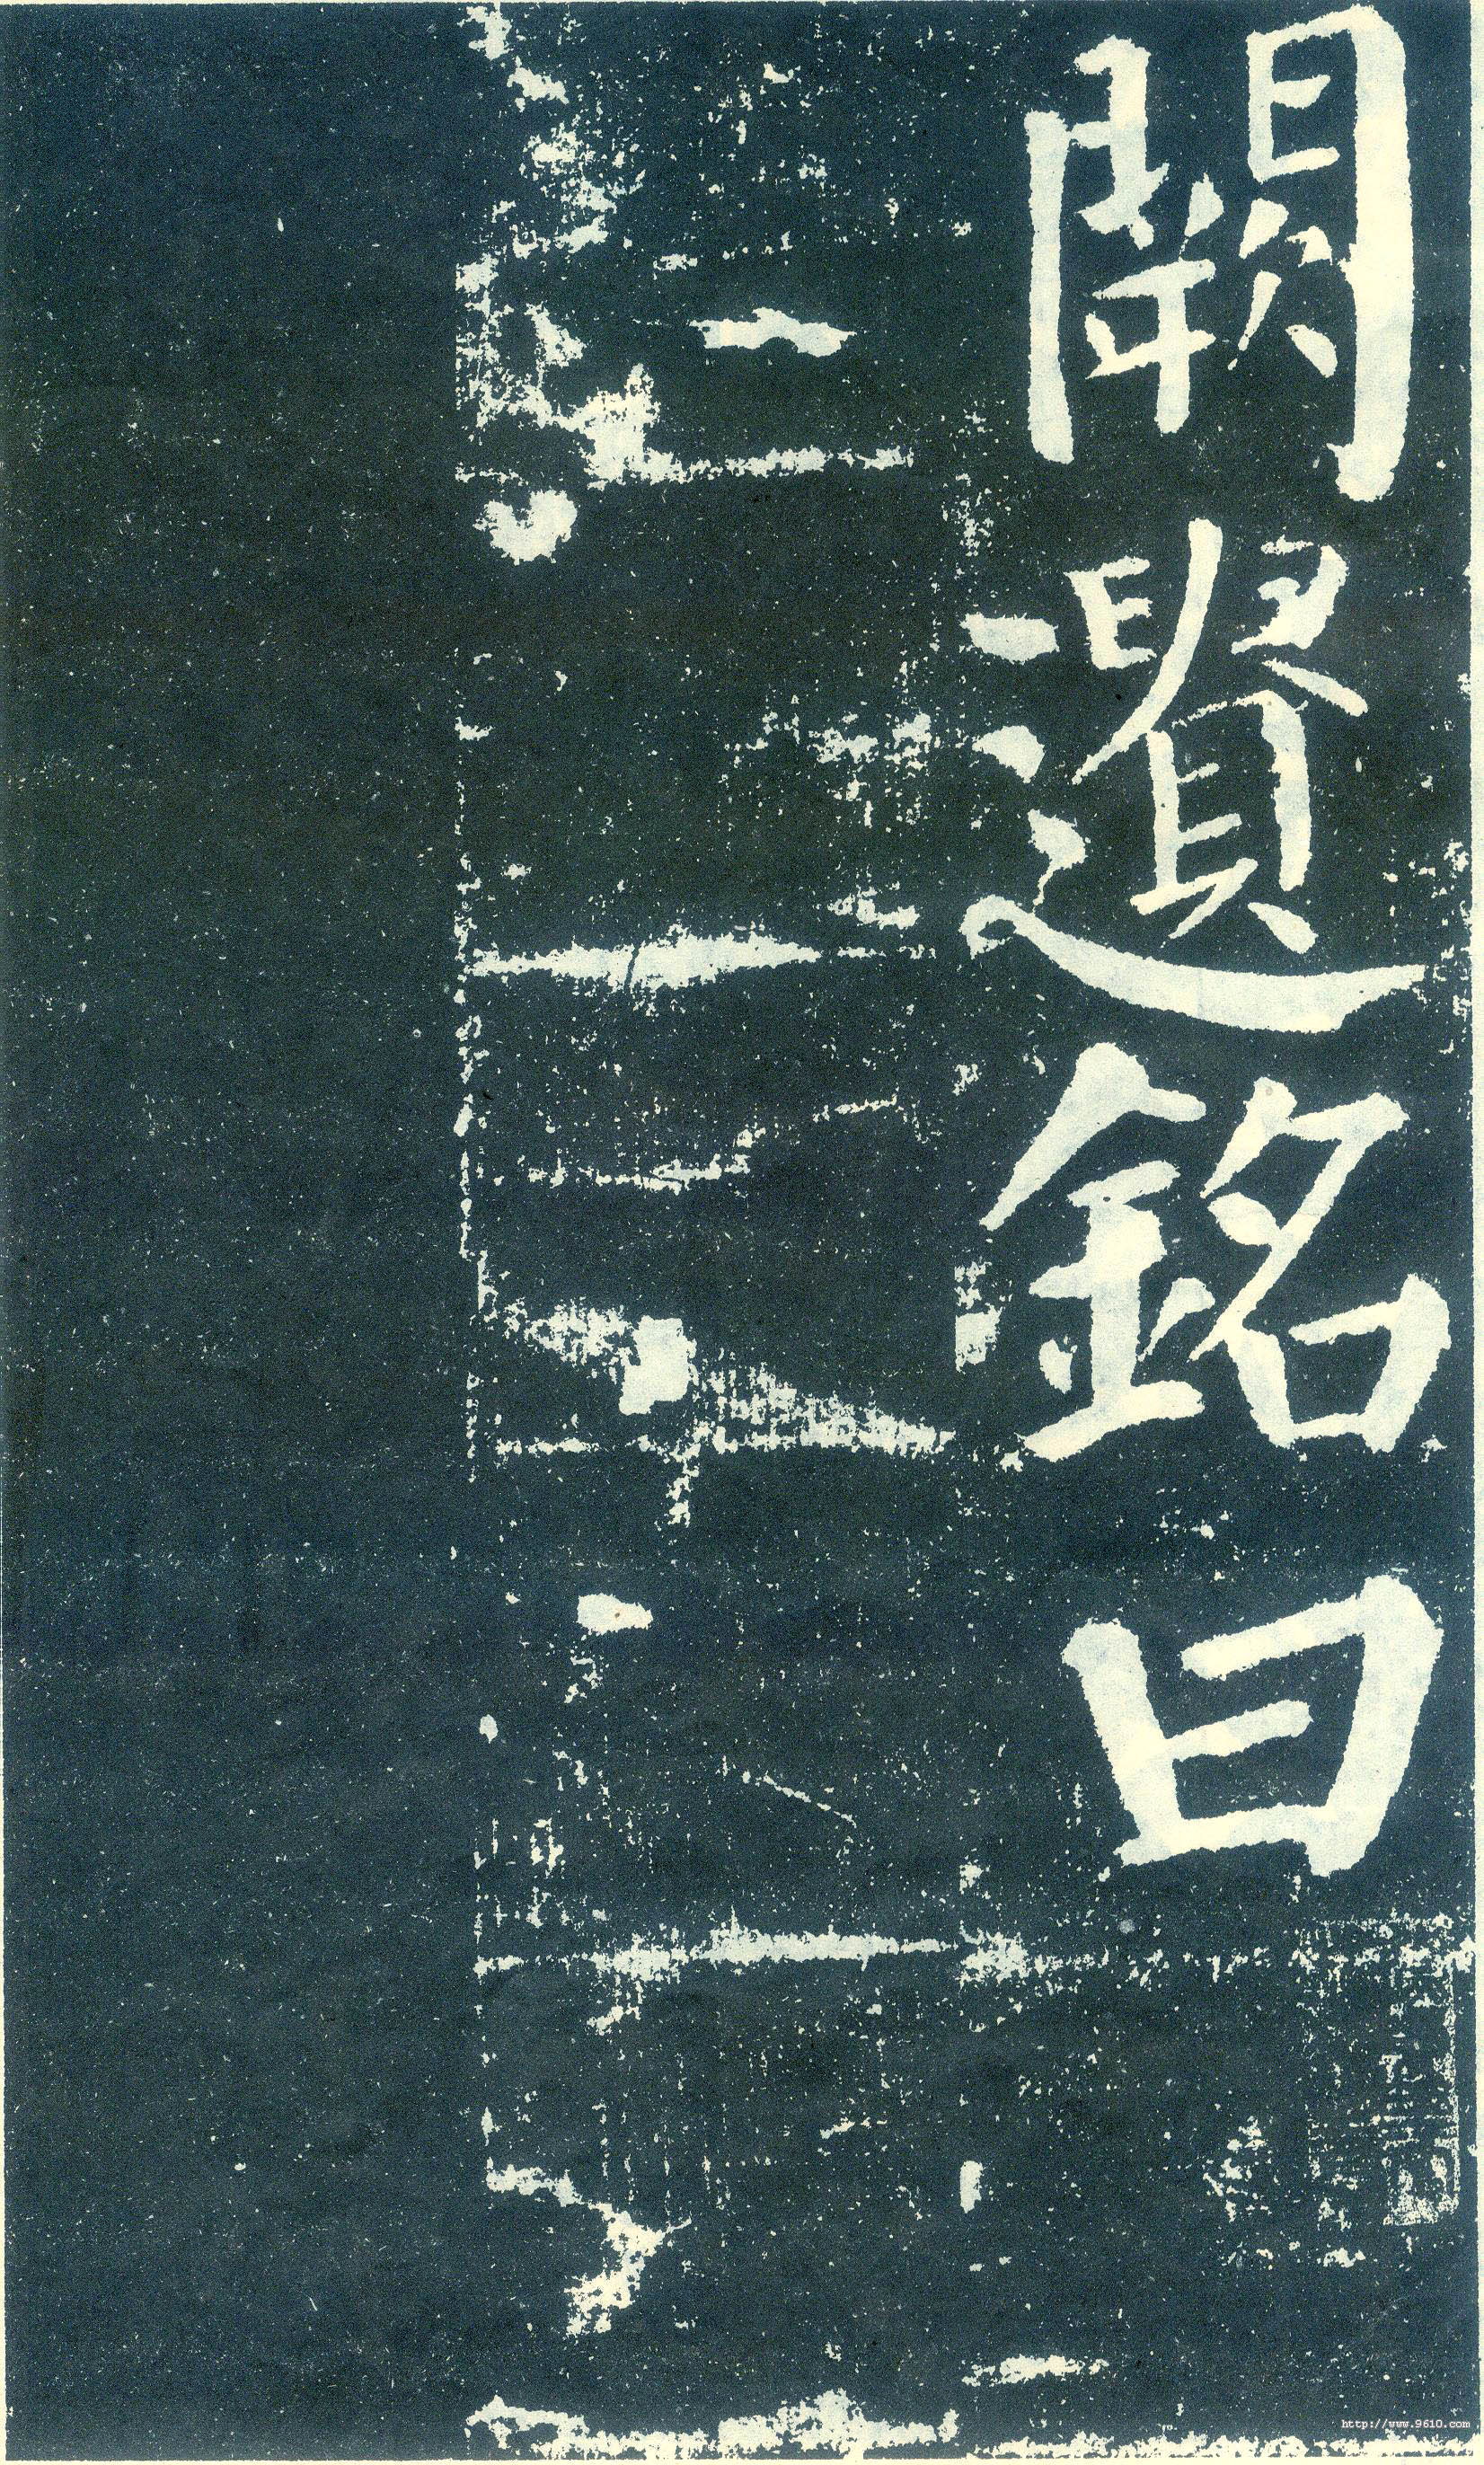 闕遺銘曰
http://www.9610.com